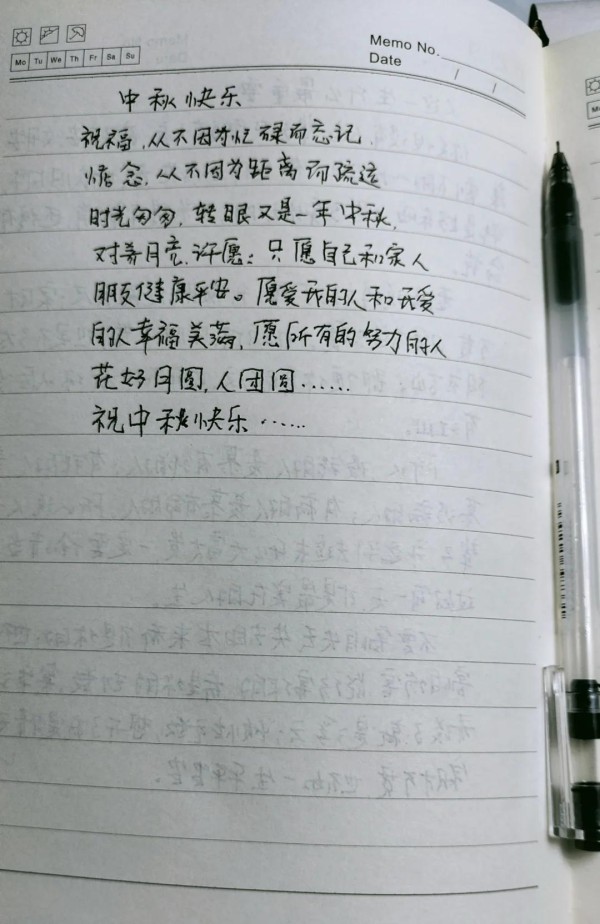 Memo No.
Mo Tu We Th Fr Sa Su
Date / /
中秋快乐
祝福,从不因为忙碌而忘记
惦念,从不因为距离而疏远
时光匆匆,转眼又是一年中秋,
对着月亮许愿:只愿自己和家人
朋友健康平安。愿爱我的人和我爱
的人幸福美满,愿所有的努力的人
花好月圆,人团圆……
祝中秋快乐……